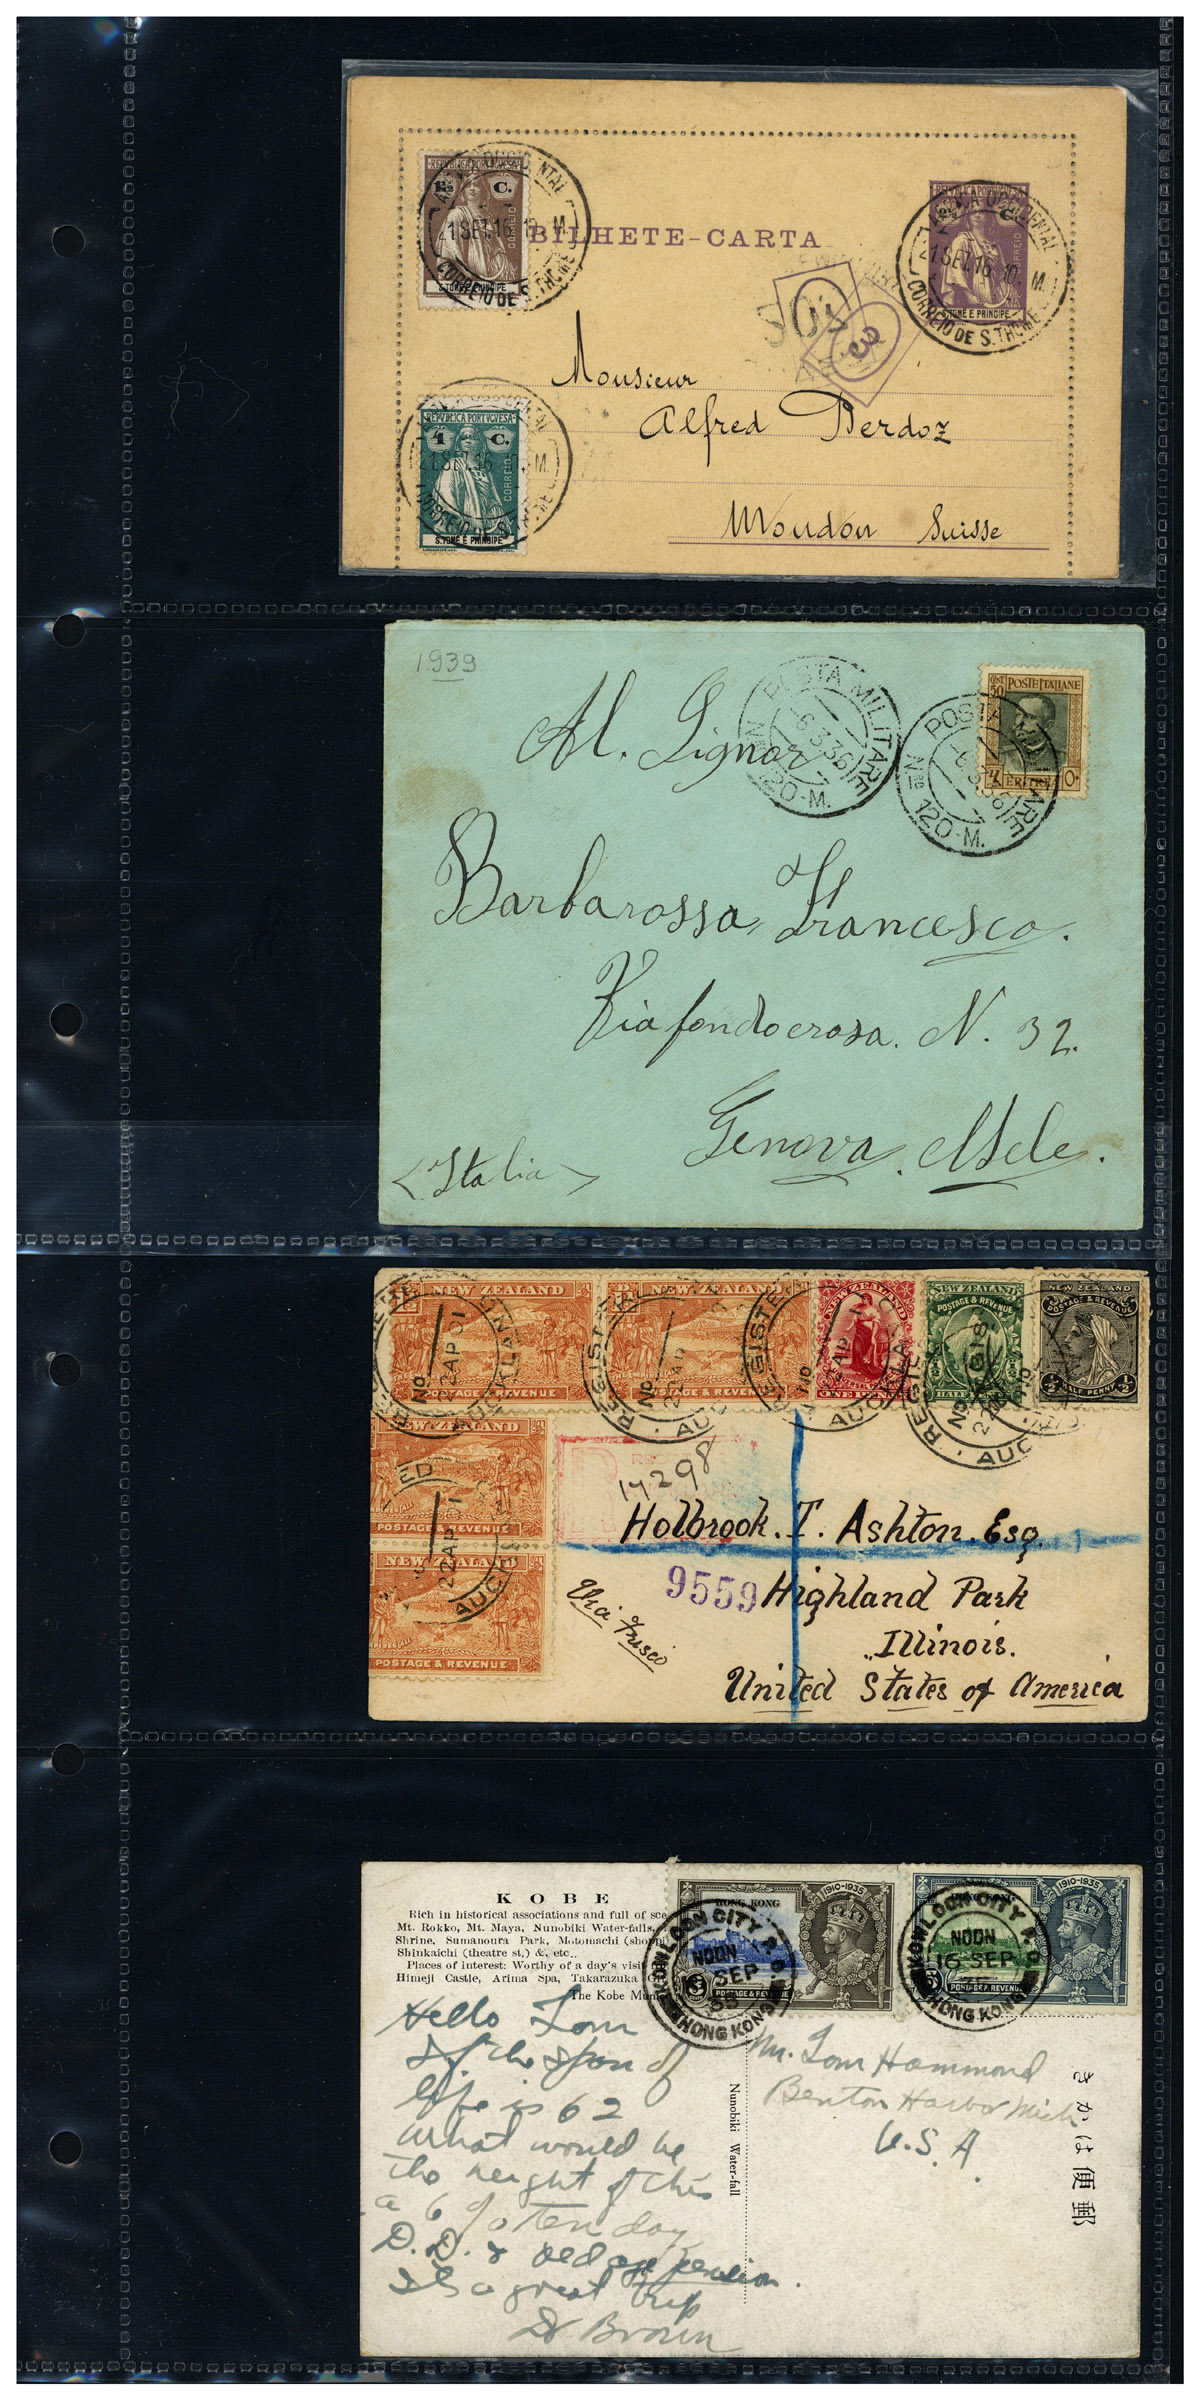 REPUBLICA PORTUGUESA
1½ C.
CORREIO
S. TOME E PRINCIPE
AFRICA OCCIDENTAL
21 SET. 16 10 M.
CORREIO DE S. THOMÉ
BILHETE-CARTA
REPUBLICA PORTUGUESA
C.
CORREIO
S. TOMÉ E PRINCIPE
AFRICA OCCIDENTAL
21 SET. 16 10 M.
CORREIO DE S. THOMÉ
3
Monsieur
Alfred Berdoz
Moudon Suisse
REPUBLICA PORTUGUESA
4 C.
CORREIO
S. TOMÉ E PRINCIPE
21 SET. 16
1939
POSTA MILITARE
-6.3.36
7
Nro 120-M.
POSTE ITALIANE
50
ERITREA
POSTA MILITARE
Nro 120-M.
Al. Signor
Barbarossa Francesco.
N. 32.
Genova.
<Italia>
NEW ZEALAND
POSTAGE & REVENUE
REGISTERED
No
22 AP 01
AUCKLAND
NEW ZEALAND
POSTAGE & REVENUE
NEW ZEALAND
UNIVERSAL POSTAGE
ONE PENNY
NEW ZEALAND
POSTAGE & REVENUE
HALF PENNY
NEW ZEALAND
POSTAGE & REVENUE
½ HALF PENNY ½
NEW ZEALAND
POSTAGE & REVENUE
NEW ZEALAND
POSTAGE & REVENUE
R
Holbrook. T. Ashton. Esq.
9559
Highland Park
Via Frisco
Illinois.
United States of America
KOBE
Rich in historical associations and full of sce
Mt. Rokko, Mt. Maya, Nunobiki Water-falls,
Shrine, Sumanoura Park, Motomachi (shoppi
Shinkaichi (theatre st.) &, etc..
Places of interest: Worthy of a day's visit
Himeji Castle, Arima Spa, Takarazuka
The Kobe Mun
HONG KONG
1910-1935
POSTAGE & REVENUE
KOWLOON CITY P.O.
NOON
16 SEP
35
HONG KONG
1910-1935
POSTAGE & REVENUE
KOWLOON CITY P.O.
NOON
16 SEP
35
HONG KONG
Hello Tom
If the span of
life is 62
What would be
the height of this
a 6 % ten day
D.D. & old age pension.
Its a great trip
Dr Brown
Nunobiki Water-fall
Mr. Tom Hammond
Benton Harbor Mich
U.S.A.
きかは便郵